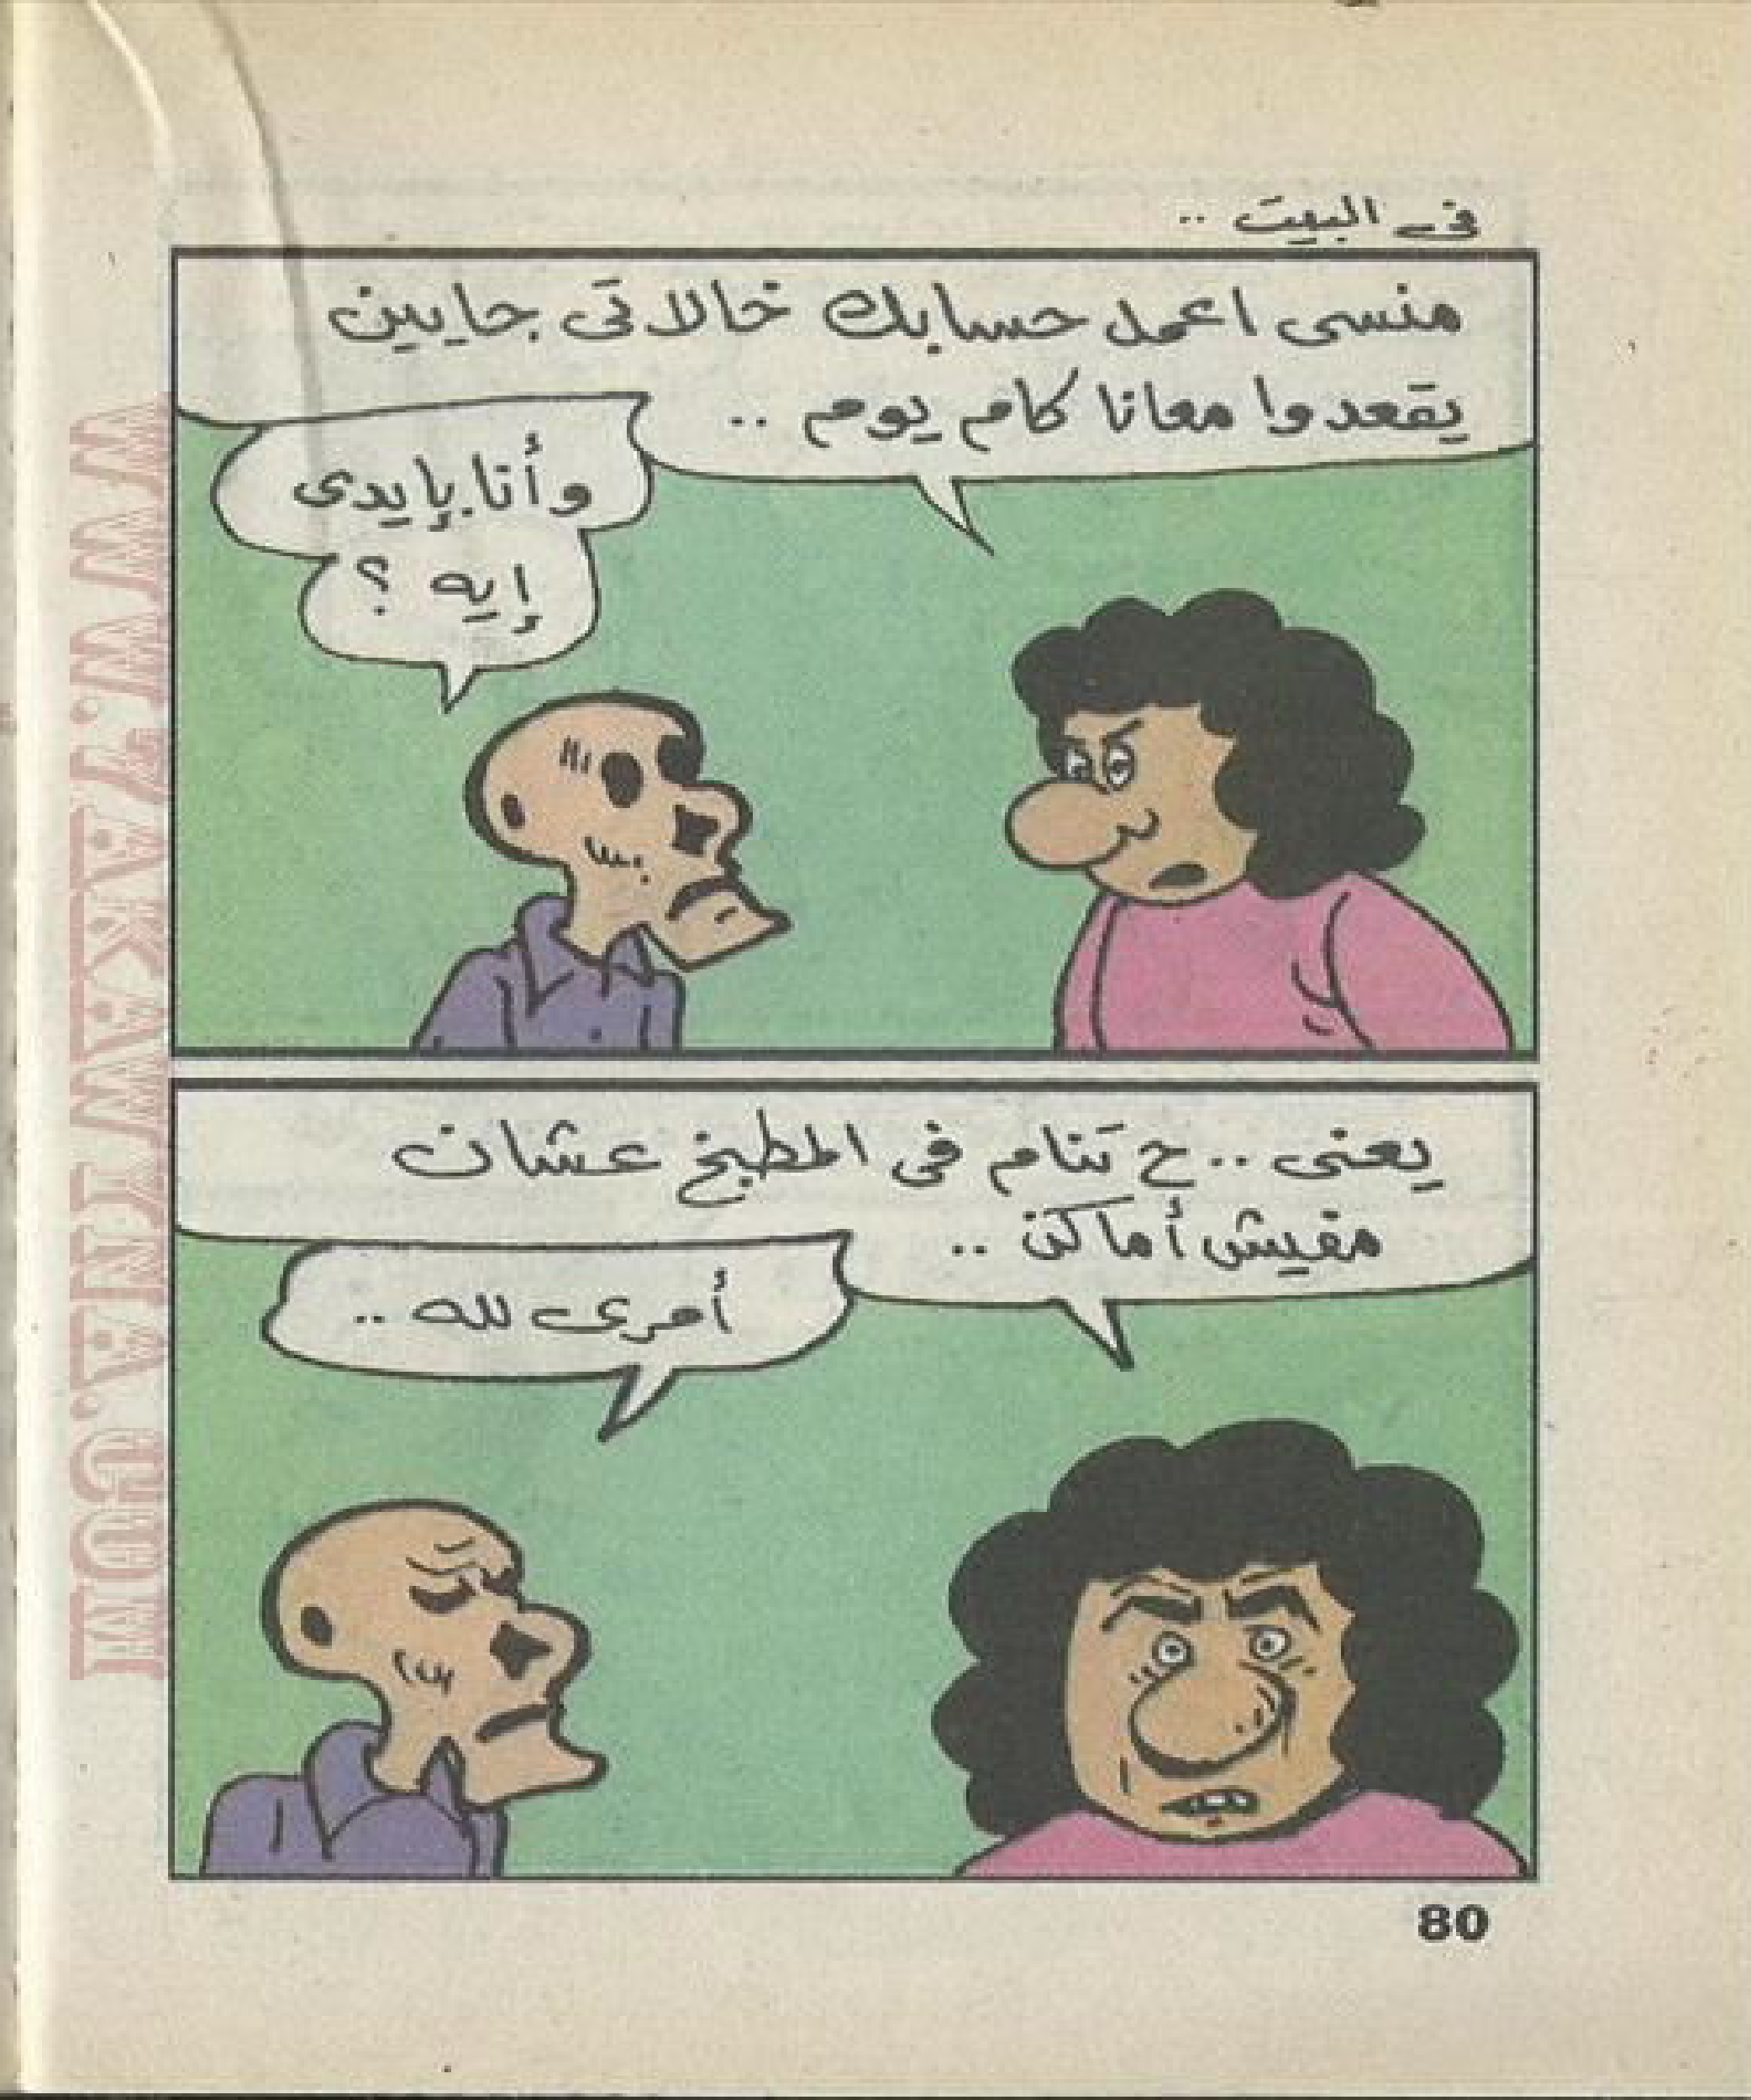 فى البيت ..
منسى اعمل حسابك خالاتى جايين
يقعدوا معانا كام يوم ..
وأنا بإيدى
إيه ؟
يعنى .. ح تنام فى المطبخ عشان
مفيش أماكن ..
أمرى لله ..
80
WWW.TAKAWINAT.COM